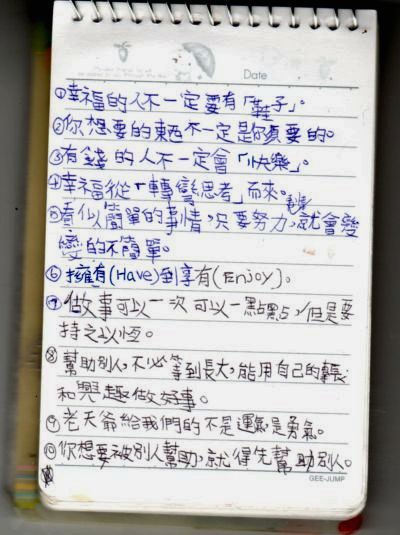 Date
①幸福的人不一定要有「鞋子」。
②你想要的東西不一定是你須要的。
③有錢的人不一定會「快樂」。
④幸福從「轉變思考」而來。
⑤看似簡單的事情,只要努力,就會變
變的不簡單。
⑥擁有(Have)到享有(Enjoy)。
⑦做事可以一次可以一點點,但是要
持之以恆。
⑧幫助別人,不必等到長大,能用自己的專長
和興趣做好事。
⑨老天爺給我們的不是運氣是勇氣。
⑩你想要被別人幫助,就得先幫助別人。
GEE-JUMP